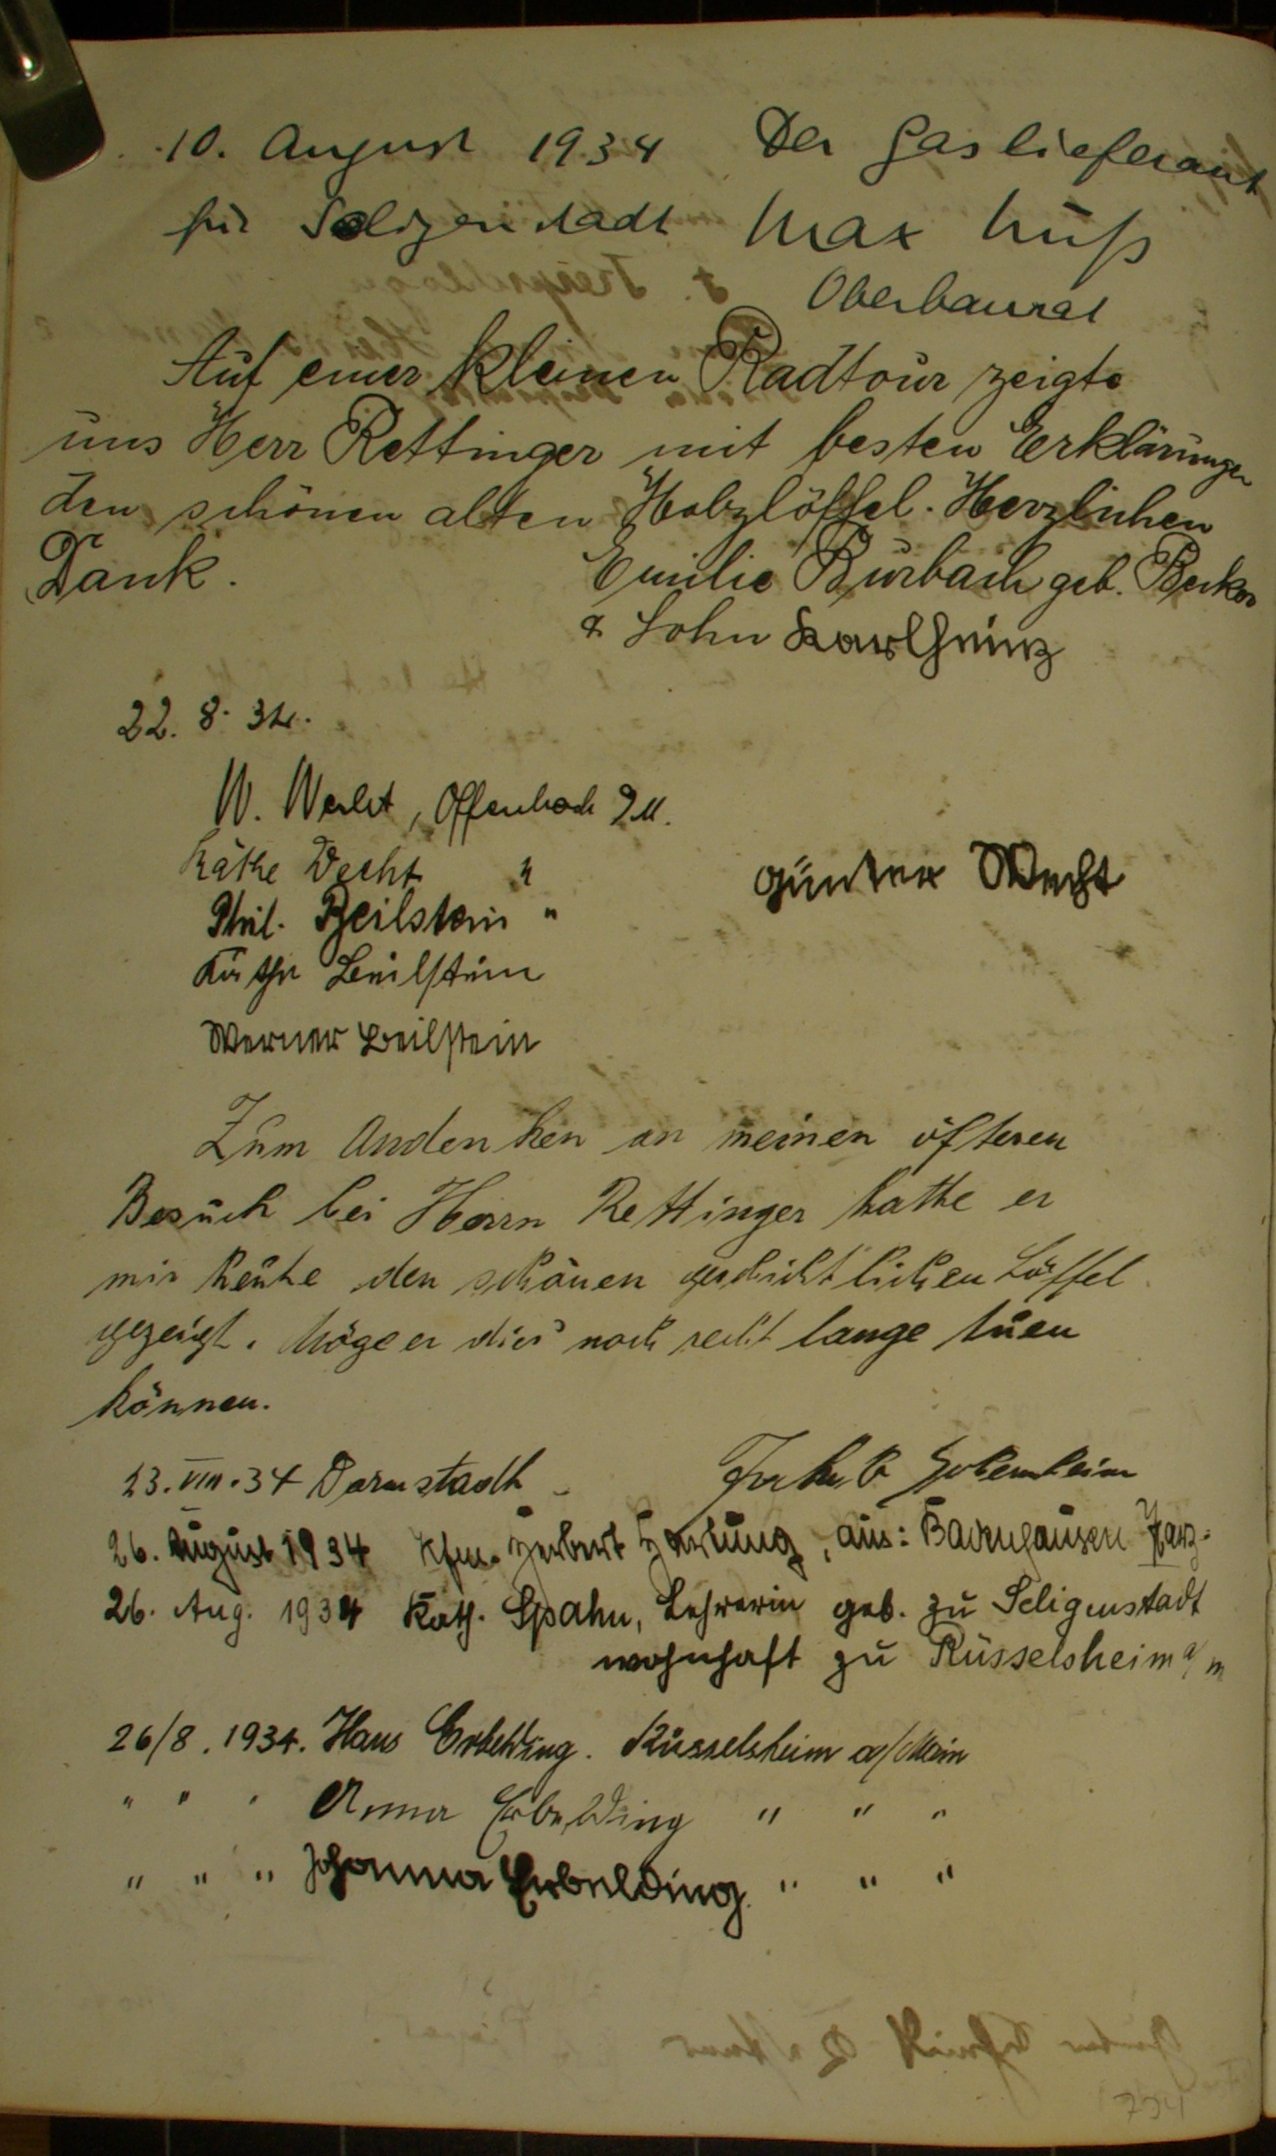 10. August 1934 Der Gaslieferant
für Seligenstadt Max Nuß
Oberbaurat
Auf einer kleinen Radtour zeigte
uns Herr Rettinger mit besten Erklärungen
den schönen alten Holzlöffel. Herzlichen
Dank. Emilie Burbach geb. Becker
& Sohn Karlheinz
22. 8. 34.
W. Wecht, Offenbach M.
Käthe Wecht "
Günter Wecht
Phil. Beilstein "
Käthe Beilstein
Werner Beilstein
Zum Andenken an meinen öfteren
Besuch bei Herrn Rettinger hatte er
mir heute den schönen geschichtlichen Löffel
gezeigt. Möge er dies noch recht lange tuen
können.
23. VIII. 34 Darmstadt
26. August 1934 Kfm. Herbert Hartung, aus: Badenhausen Harz.
26. Aug. 1934 Kath. Spahn, Lehrerin geb. zu Seligenstadt
wohnhaft zu Rüsselsheim a/m
26/8. 1934. Hans Erbelding. Rüsselsheim a/Main
" " " Anna Erbelding " " "
" " " Johanna Erbelding. " " "